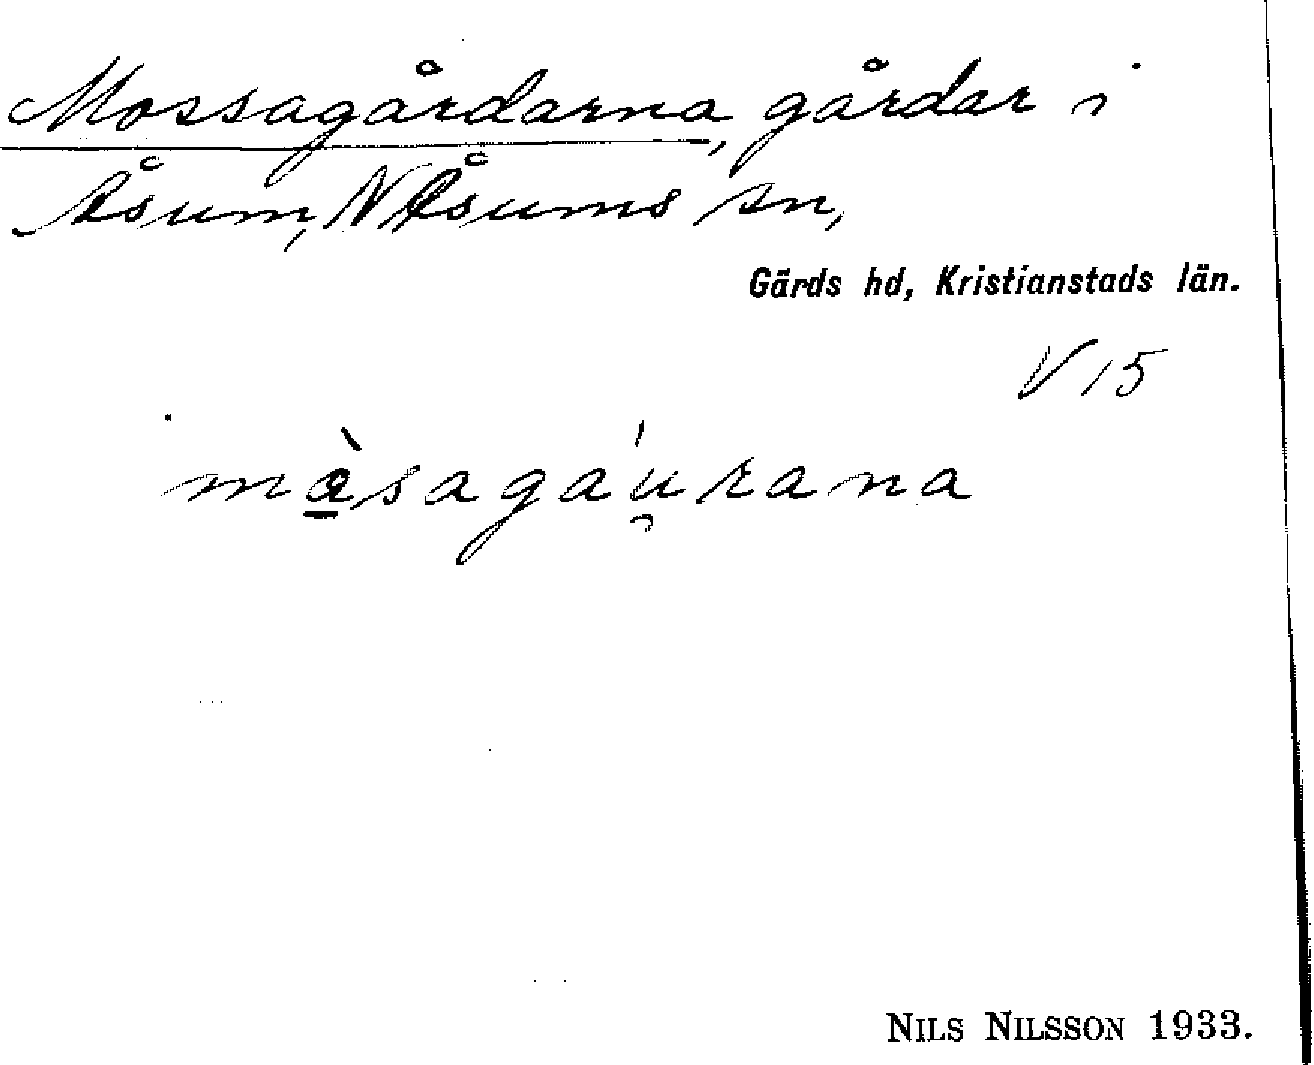 Mossagårdarna, gårdar i
Åsum, N Åsums sn,
Gärds hd, Kristianstads län.
V 15
mò̲sagaú̯rana
NILS NILSSON 1933.